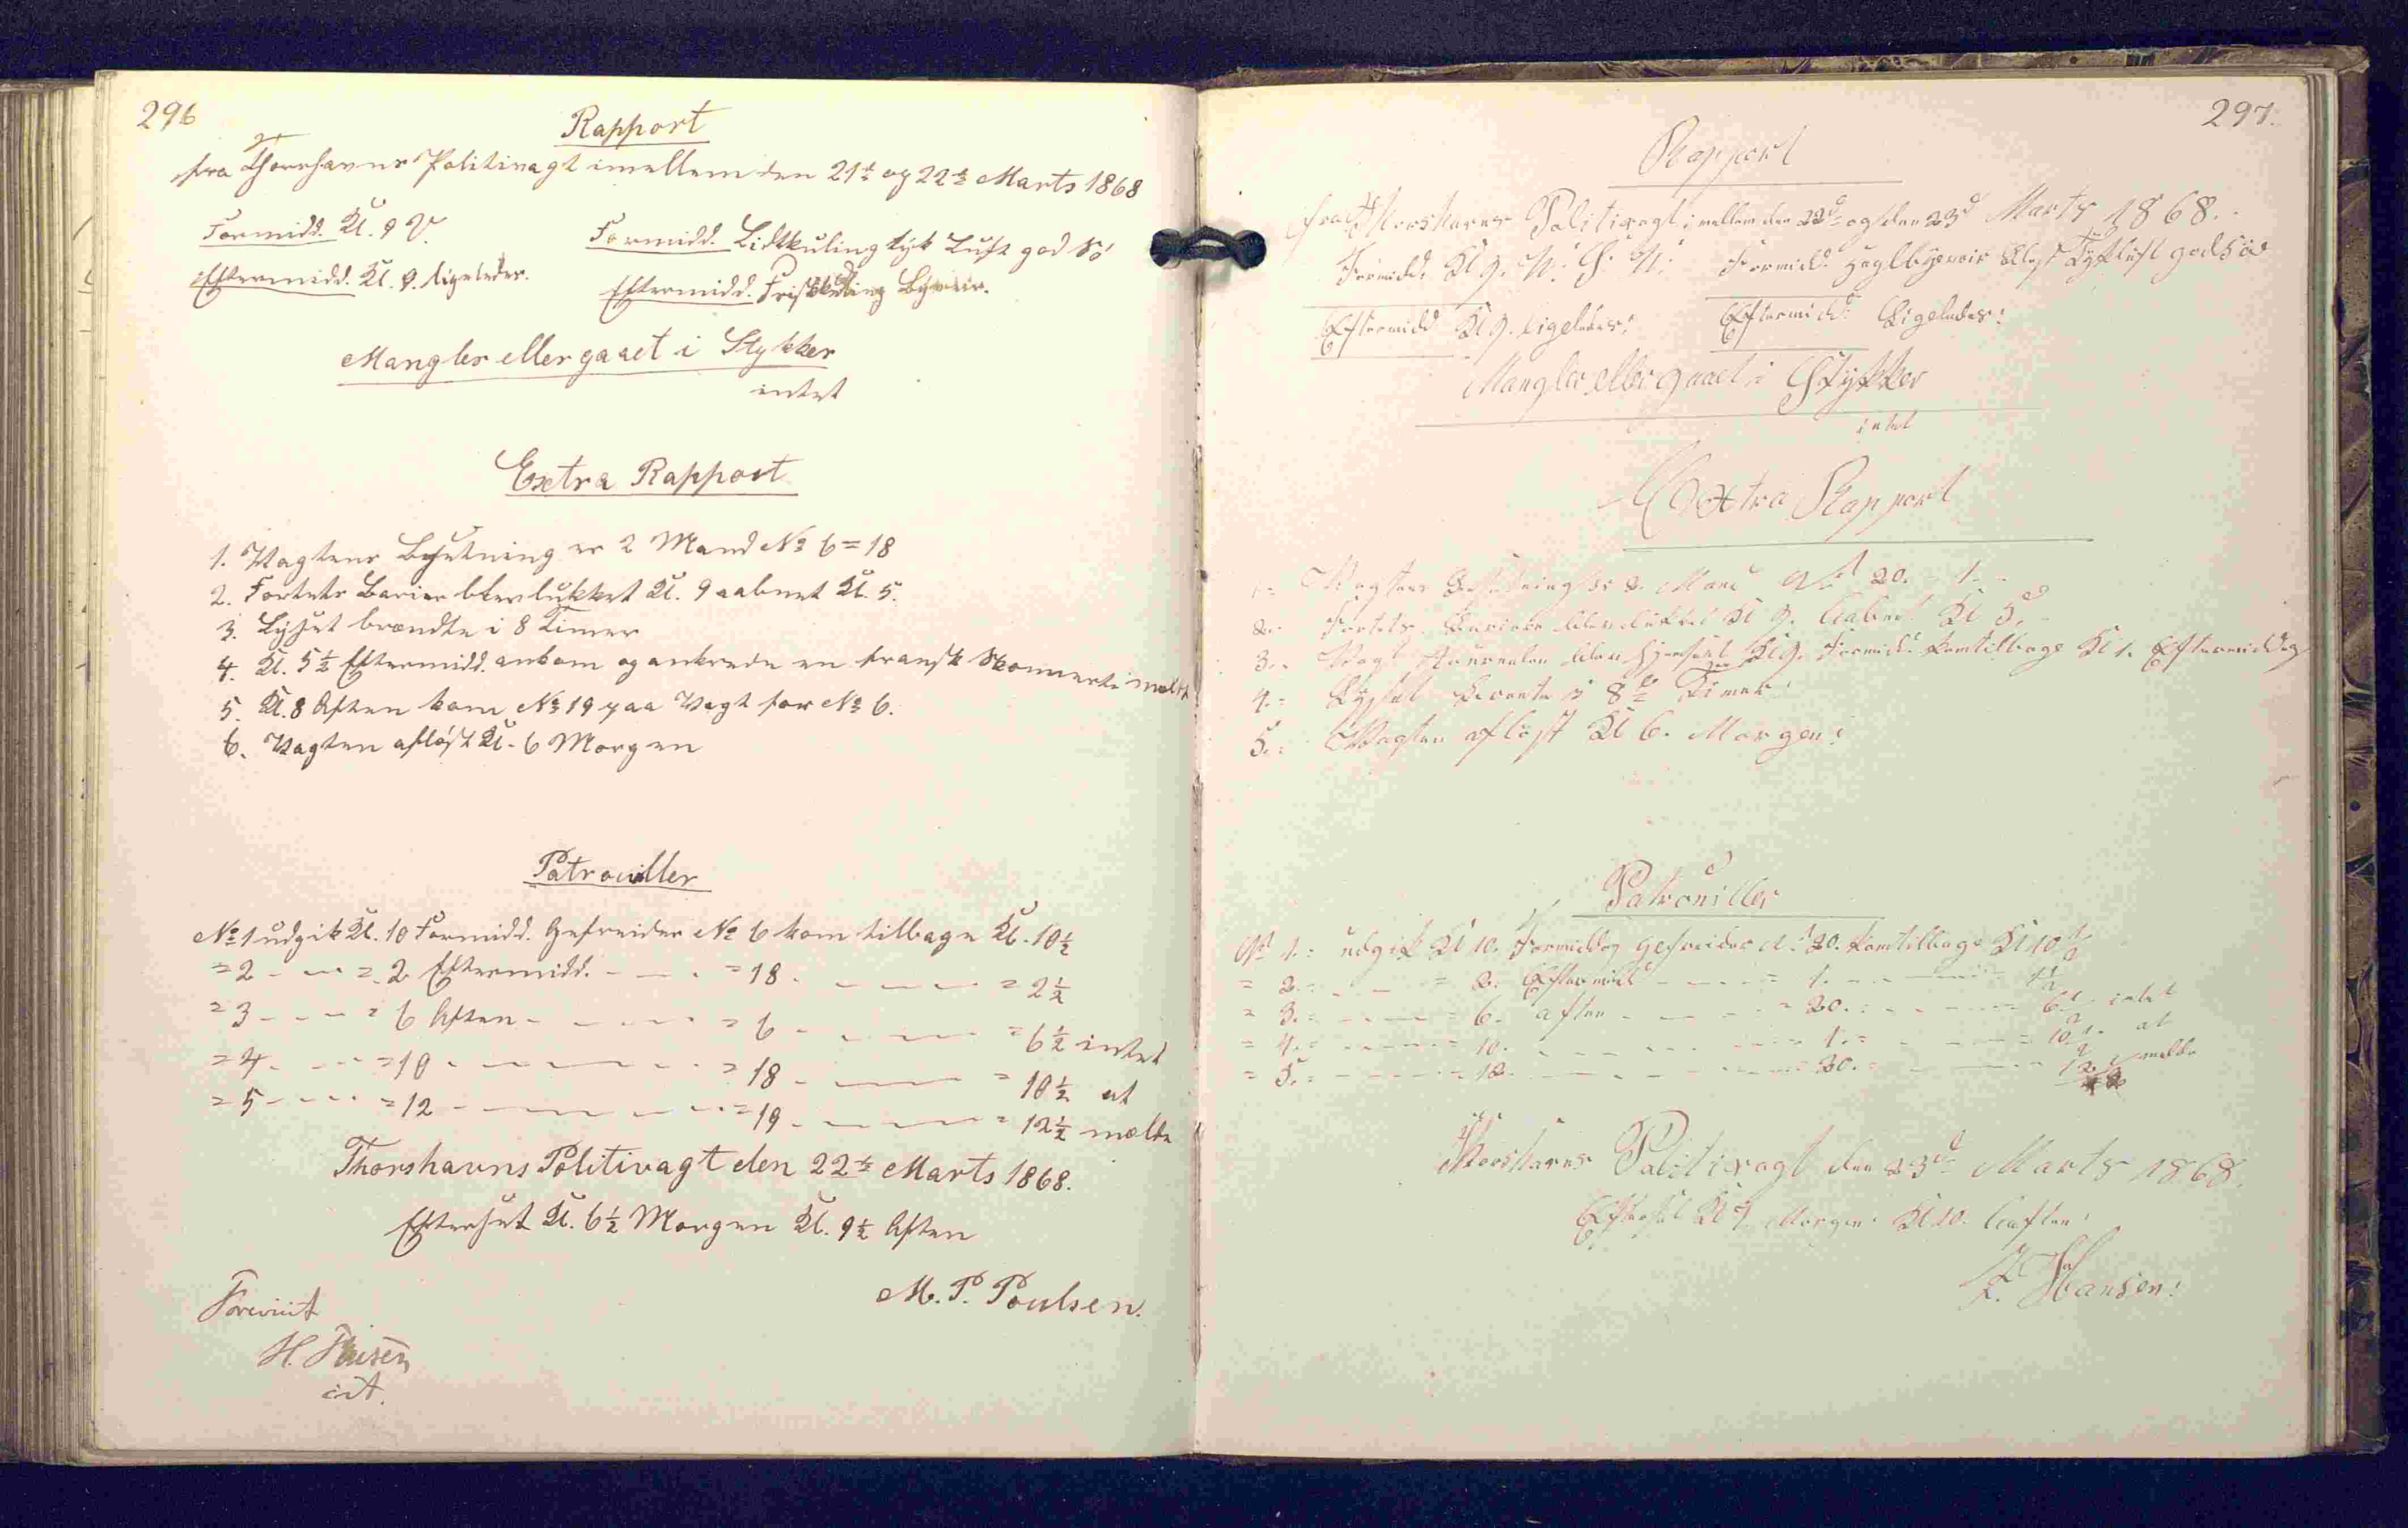 296
Rapport
fra Thorshavns Politivagt imellem den 21de og 22de Marts 1868
Formidd. Kl. 9 V.
Formidd. Lidtkuling tyk Luft god Sö
Eftermidd. Kl. 9. ligeledes.
Eftermidd. Friskkuling Byveir.
Mangler eller gaaet i Stykker
intet
Extra Rapport
1. Vagtens Besetning er 2 Mand No 6 = 18
2. Fortets Barier blev lukket Kl. 9 aabnet Kl. 5.
3. Lyset brændte i 8 Timer
4. Kl. 5½ Eftermidd. ankom og ankrede en fransk Skonnert
5. Kl. 8 Aften kom No 19 paa Vagt for No 6.
6. Vagten aflöst Kl. 6 Morgen
Patrouiller
No 1 udgik Kl. 10 Formidd. Gefreider No 6 kom tilbage Kl. 10½
= 2 - - - = 2 Eftermidd. - - - = 18. - - - = 2½
= 3 - - - = 6 Aften - - - = 6 - - - = 6½ intet
= 4. - - - = 10 - - - = 18 - - - = 10½ at
= 5 - - - = 12 - - - = 19 - - - = 12½ melde
Thorshavns Politivagt den 22de Marts 1868.
Efterset Kl. 6½ Morgen Kl. 9½ Aften
M. P. Poulsen.
Forevist
H.
cst.
297.
Rapport
fra Thorshavns Politivagt imellem den 22d og den 23d Marts 1868.
Formidd. Kl 9. N. . N: Formidd. Haglbyeveir Tyk luft god Söe
Eftermidd Kl 9. ligeledes: Eftermidd: Ligeledes:
Mangler eller gaaet i Stykker
intet
Extra Rapport
1= Vagtens Besetning er 2. Mand No 20. = 1. -
2. Fortets Bariere blev lukket Kl 9. Aabnet Kl 5. -
3. Vagt blev Kl 9. Formidd: kom tilbage Kl 1. Eftermiddag
4. = Lyset brente i 8te Timer:
5. = Vagten aflöst Kl 6. Morgen:
Patrouiller
No 1. : udgik Kl 10. Formiddag Gefreider No 20. kom tilbage Kl 10½
= 2. = - - - = 2. Eftermidd - - - = 1. - - -
= 3. = - - - = 6. aften - - - = 20. - - - = 6½ intet
= 4. = - - - = 10. - - - = 1. = - - - = 10½ at
= 5. = - - - = 12. - - - = 20. = - - - = 12½ melde
Thorshavns Politivagt den 23d Marts 1868.
Efterset Kl 7 Morgen: Kl 10. Aaften:
Hansen: